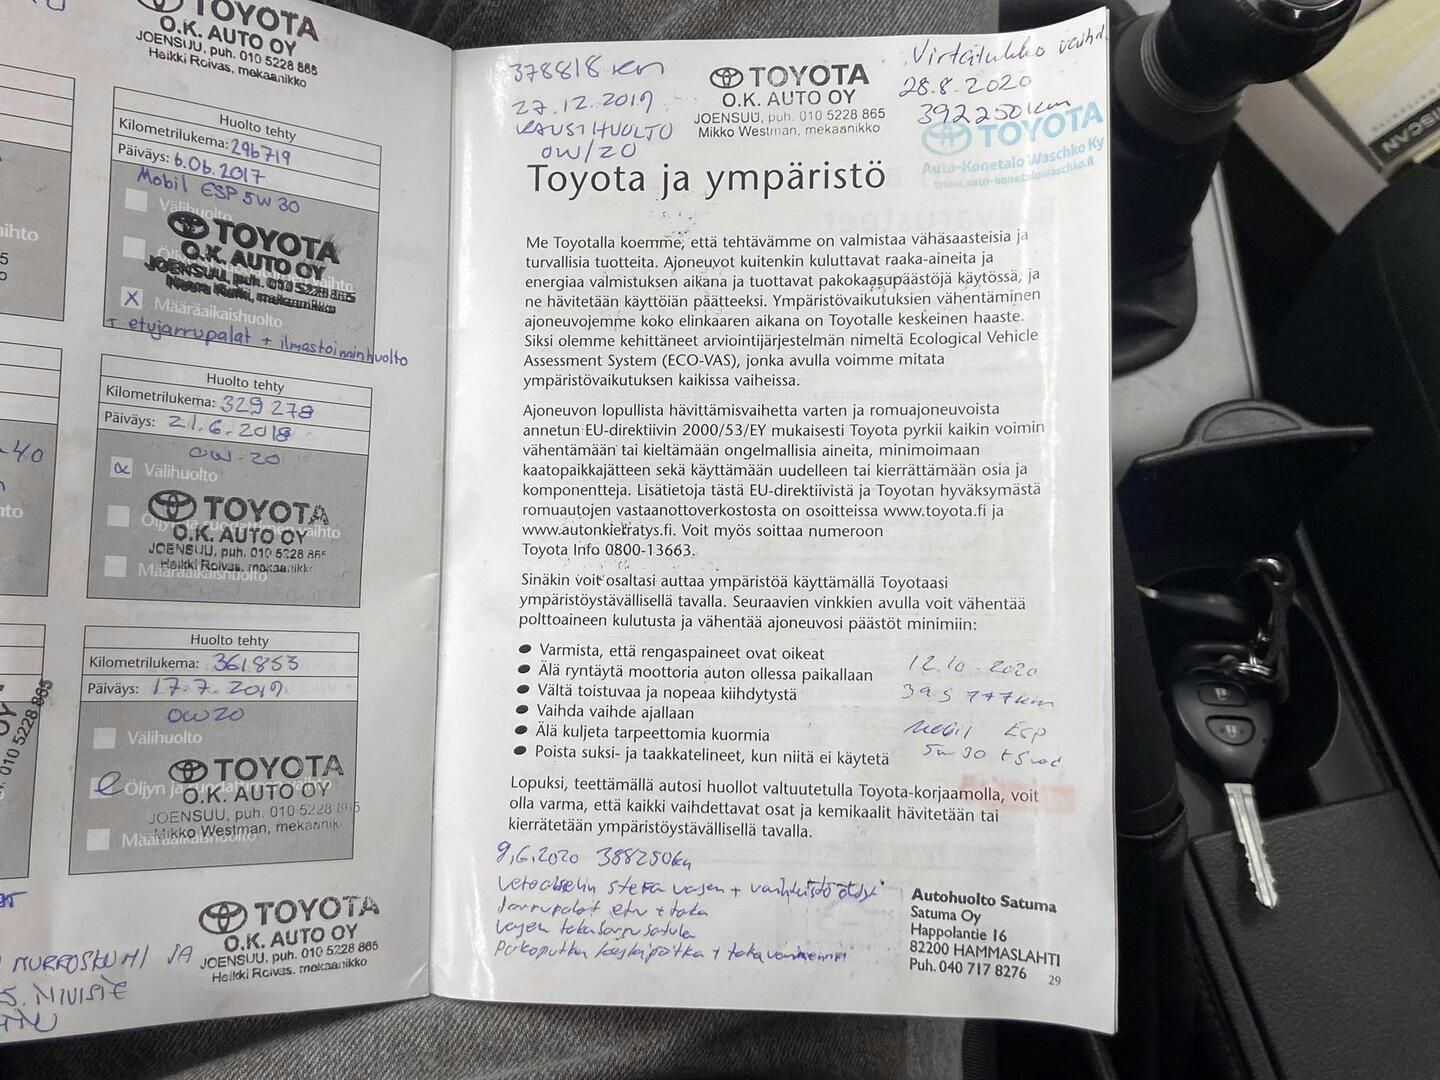 TOYOTA
O.K. AUTO OY
JOENSUU, puh. 010 5228 865
Heikki Roivas, mekaanikko
Huolto tehty
Kilometrilukema: 296719
Päiväys: 6.06.2017
Mobil ESP 5W30
Välihuolto
TOYOTA
O.K. AUTO OY
JOENSUU, puh. 010 5228 865
X Määräaikaishuolto
+ etujarrupalat + ilmastoinninhuolto
Huolto tehty
Kilometrilukema: 329 278
Päiväys: 21.6.2018
OW-20
Välihuolto
TOYOTA
O.K. AUTO OY
JOENSUU, puh. 010 5228 865
Heikki Roivas, mekaanikko
Määräaikaishuolto
Huolto tehty
Kilometrilukema: 361853
Päiväys: 17.7.2019
OW20
Välihuolto
TOYOTA
O.K. AUTO OY
JOENSUU, puh. 010 5228 865
Mikko Westman, mekaanikko
Määräaikaishuolto
TOYOTA
O.K. AUTO OY
JOENSUU, puh. 010 5228 865
Heikki Roivas, mekaanikko
aihto
-40
nto
010 5228 865
JA
378818 km
27.12.2019
KAUSIHUOLTO
OW/20
TOYOTA
O.K. AUTO OY
JOENSUU, puh. 010 5228 865
Mikko Westman, mekaanikko
Virtalukko vaihd.
28.8.2020
392250km
TOYOTA
Auto-Konetalo Waschko Ky
www.auto-konetalowaschko.fi
Toyota ja ympäristö
Me Toyotalla koemme, että tehtävämme on valmistaa vähäsaasteisia ja
turvallisia tuotteita. Ajoneuvot kuitenkin kuluttavat raaka-aineita ja
energiaa valmistuksen aikana ja tuottavat pakokaasupäästöjä käytössä, ja
ne hävitetään käyttöiän päätteeksi. Ympäristövaikutuksien vähentäminen
ajoneuvojemme koko elinkaaren aikana on Toyotalle keskeinen haaste.
Siksi olemme kehittäneet arviointijärjestelmän nimeltä Ecological Vehicle
Assessment System (ECO-VAS), jonka avulla voimme mitata
ympäristövaikutuksen kaikissa vaiheissa.
Ajoneuvon lopullista hävittämisvaihetta varten ja romuajoneuvoista
annetun EU-direktiivin 2000/53/EY mukaisesti Toyota pyrkii kaikin voimin
vähentämään tai kieltämään ongelmallisia aineita, minimoimaan
kaatopaikkajätteen sekä käyttämään uudelleen tai kierrättämään osia ja
komponentteja. Lisätietoja tästä EU-direktiivistä ja Toyotan hyväksymästä
romuautojen vastaanottoverkostosta on osoitteissa www.toyota.fi ja
www.autonkierratys.fi. Voit myös soittaa numeroon
Toyota Info 0800-13663.
Sinäkin voit osaltasi auttaa ympäristöä käyttämällä Toyotaasi
ympäristöystävällisellä tavalla. Seuraavien vinkkien avulla voit vähentää
polttoaineen kulutusta ja vähentää ajoneuvosi päästöt minimiin:
● Varmista, että rengaspaineet ovat oikeat
● Älä ryntäytä moottoria auton ollessa paikallaan
● Vältä toistuvaa ja nopeaa kiihdytystä
● Vaihda vaihde ajallaan
● Älä kuljeta tarpeettomia kuormia
● Poista suksi- ja taakkatelineet, kun niitä ei käytetä
12.10.2020
395 777km
Mobil ESP
5w30
Lopuksi, teettämällä autosi huollot valtuutetulla Toyota-korjaamolla, voit
olla varma, että kaikki vaihdettavat osat ja kemikaalit hävitetään tai
kierrätetään ympäristöystävällisellä tavalla.
9.6.2020 388250km
Vetoakselin vasen +
Jarrupalat etu + taka
vasen takajarrusatula
Pakoputken keskipätkä + takavaimennin
Autohuolto Satuma
Satuma Oy
Happolantie 16
82200 HAMMASLAHTI
Puh. 040 717 8276
29